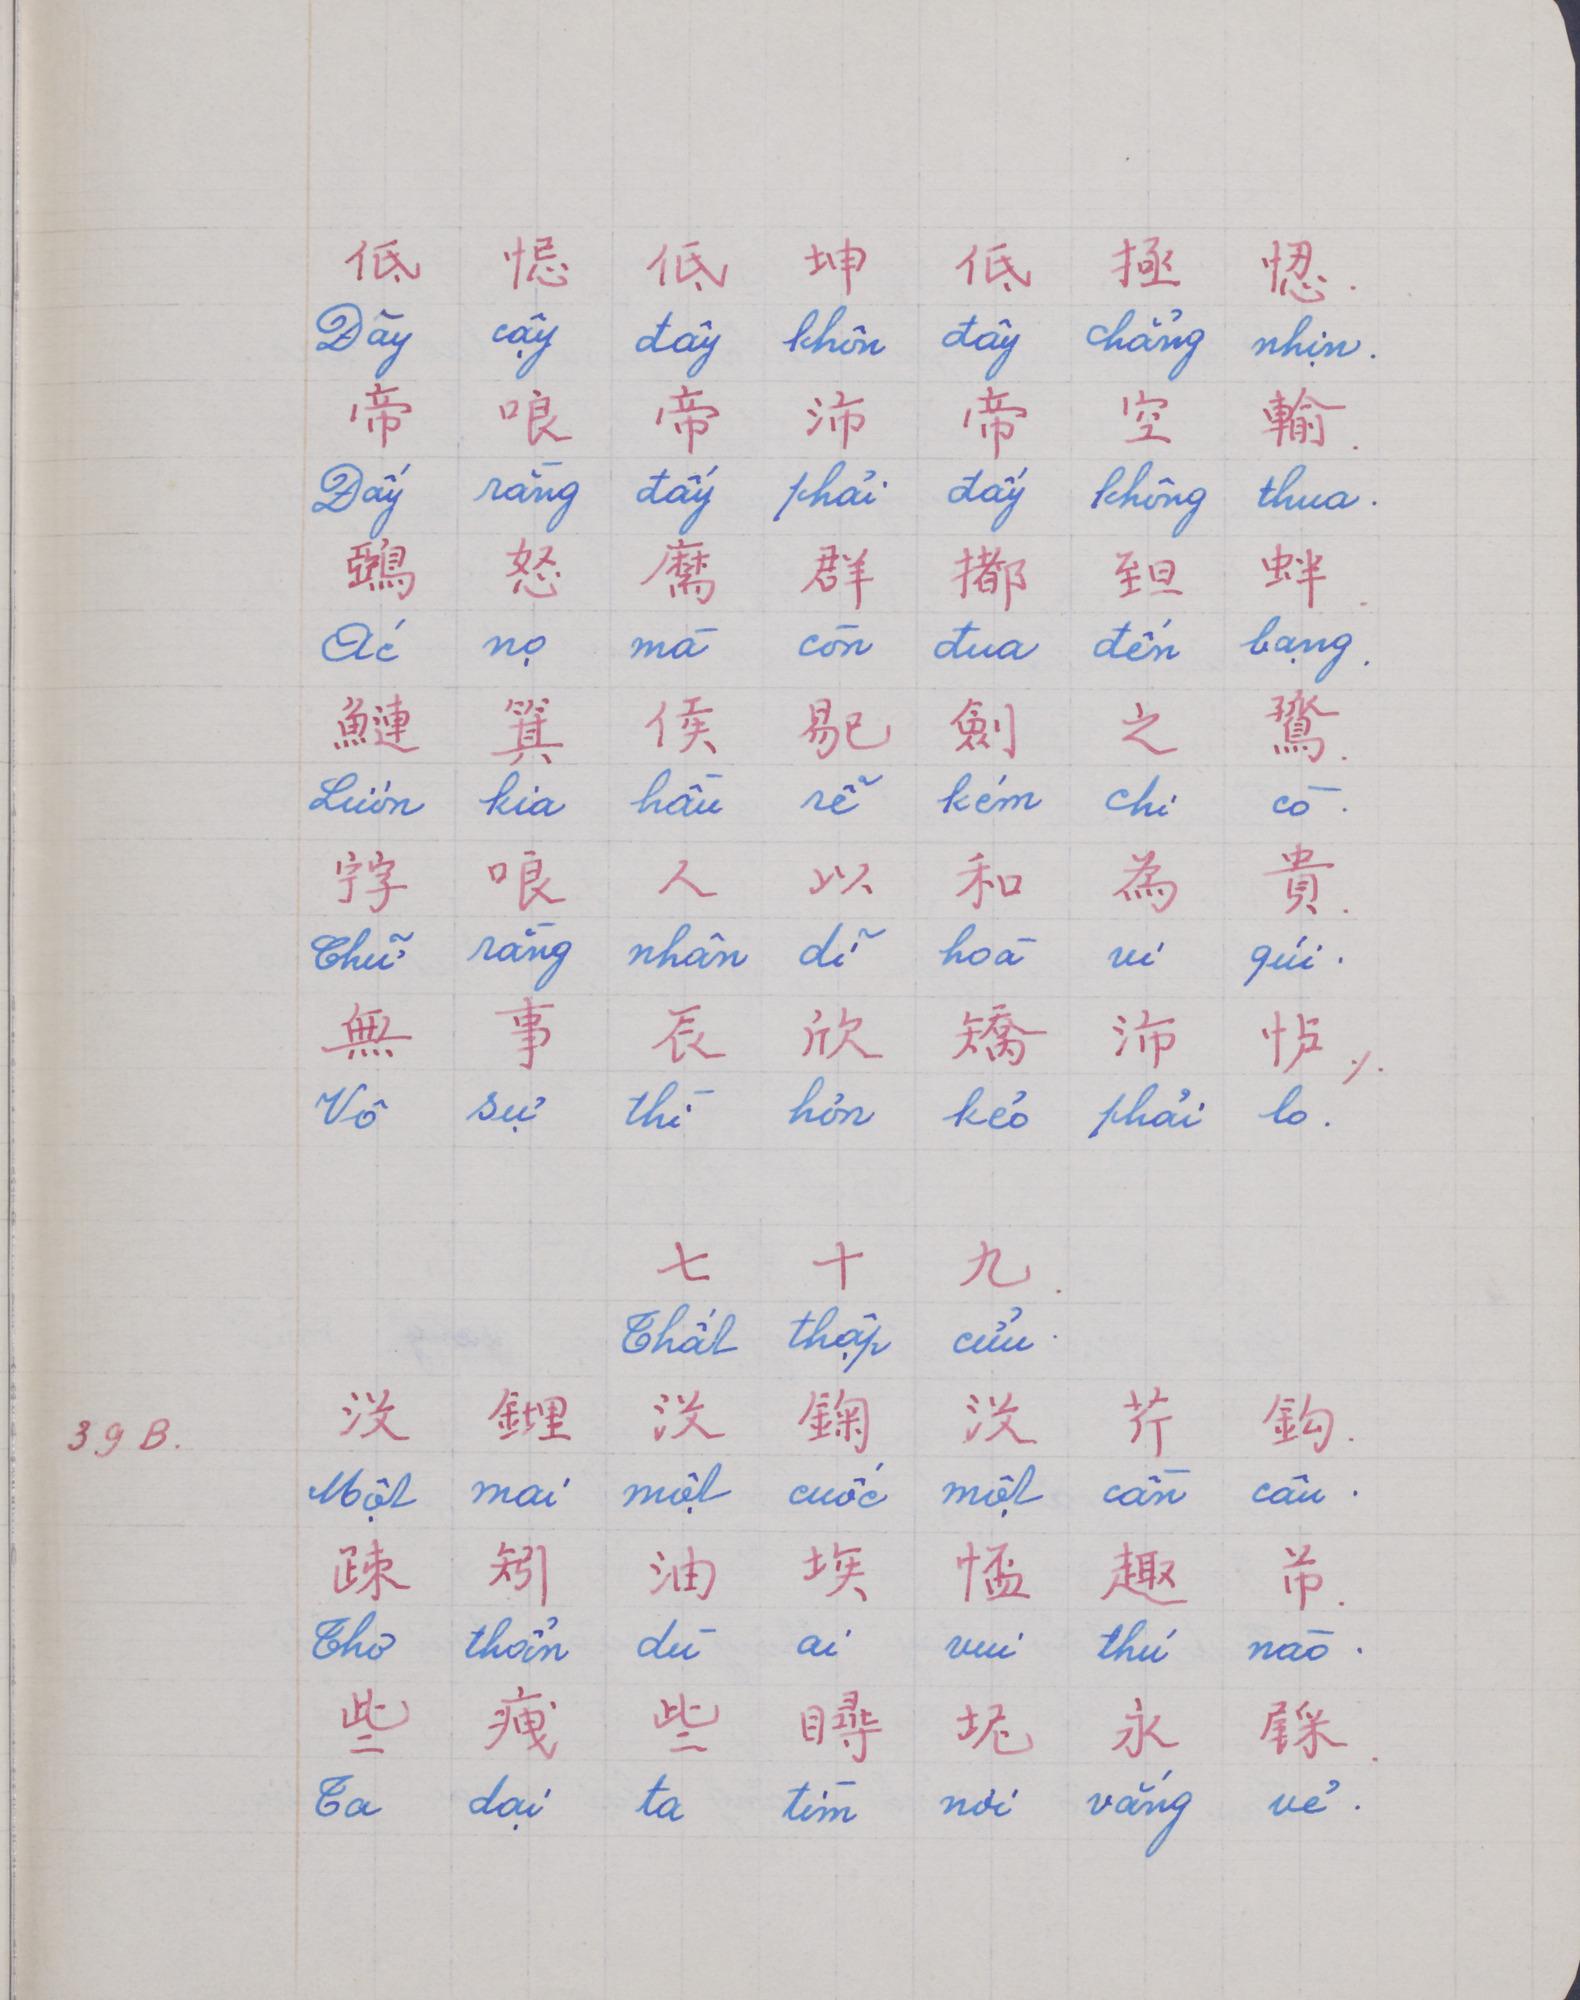 低 㤇 低 坤 低 拯 㥽.
Đây cậy đây khôn đây chẳng nhịn.
帝 哴 帝 沛 帝 空 輸.
Đấy rằng đấy phải đấy không thua.
鵶 怒 麿 群 擆 𦤾 蚌.
Ác nọ mà còn đua đến bạng.
鰱 箕 侯 𠃣 劍 之 鵉.
Lươn kia hầu rễ kém chi cò.
𡦂 哴 人 以 和 為 貴.
Chữ rằng nhân dĩ hoà vi qúi.
無 事 辰 欣 矯 沛 㤕 ٪.
Vô sự thì hơn kẻo phải lo.
七 十 九.
Thất thập cửu.
39 B.
𣵰 鍾 𣵰 鋦 𣵰 芹 鈎.
Một mai một cuốc một cần câu.
疎 矧 油 埃 𢝙 趣 芇.
Thơ thẩn dù ai vui thú nào.
些 𤵺 些 𥊀 坭 永 𨤮.
Ta dại ta tìm nơi vắng vẻ.